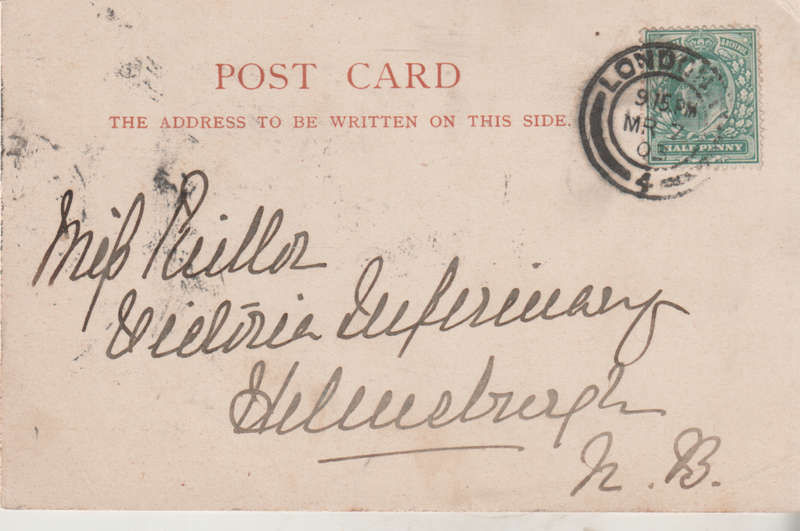 POST CARD
THE ADDRESS TO BE WRITTEN ON THIS SIDE.
LONDON
9.15 PM
MR 7
4
HALF PENNY
Miss
Victoria Infirmary
Helensburgh
N. B.